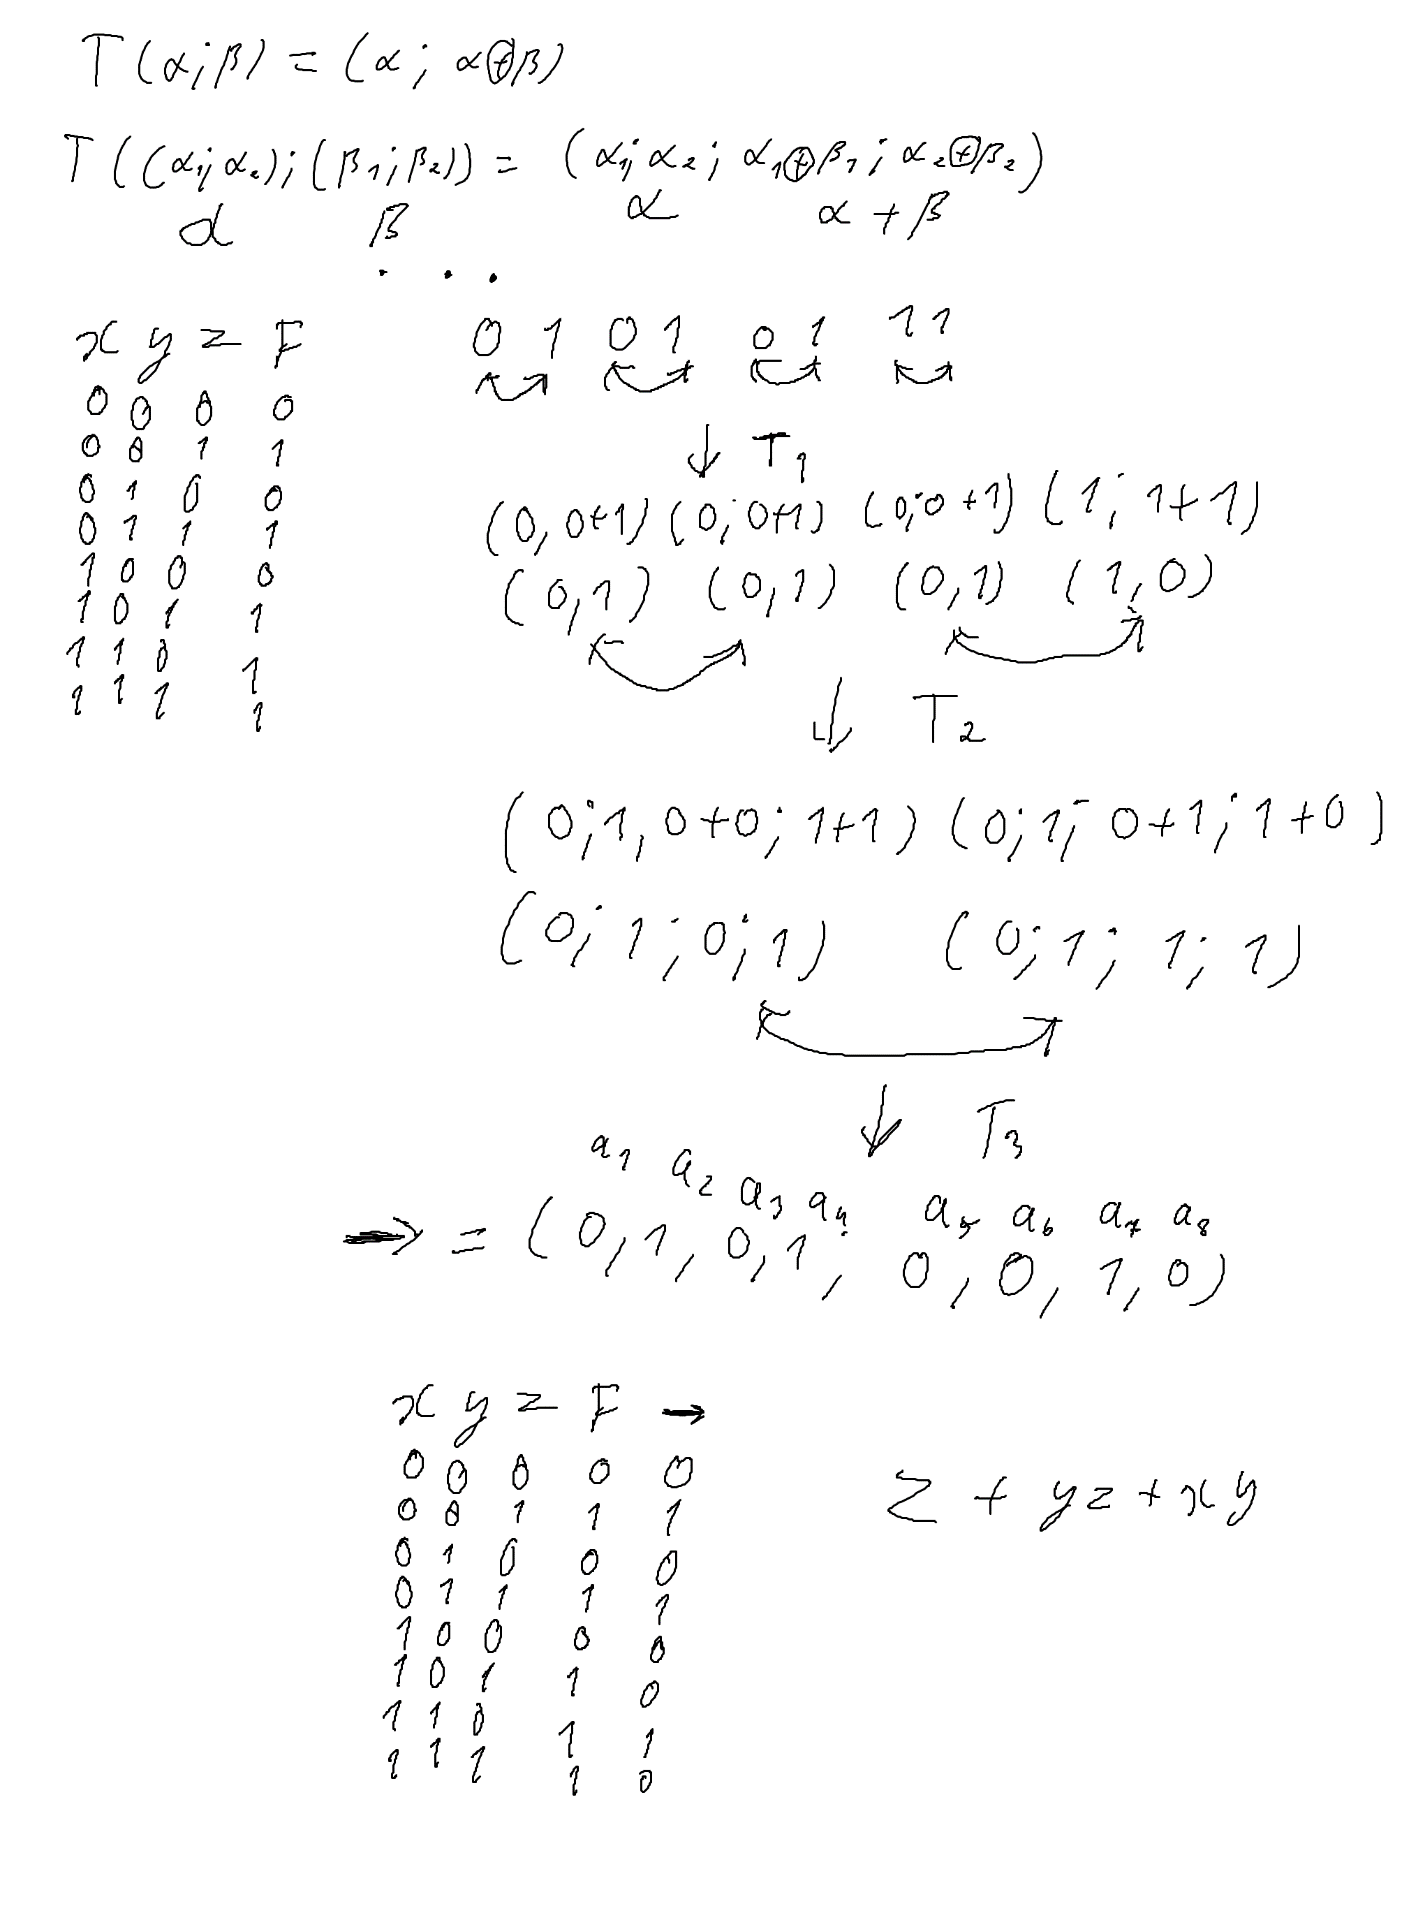 T(α;β) = (α; α⊕β)
T((α₁;α₂);(β₁;β₂)) = (α₁;α₂; α₁⊕β₁; α₂⊕β₂)
α β α α + β
. . .
x y z F
0 0 0 0
0 0 1 1
0 1 0 0
0 1 1 1
1 0 0 0
1 0 1 1
1 1 0 1
1 1 1 1
0 1 0 1 0 1 1 1
↓ T₁
(0, 0+1) (0; 0+1) (0;0+1) (1; 1+1)
(0,1) (0,1) (0,1) (1,0)
↓ T₂
(0;1, 0+0; 1+1) (0;1; 0+1; 1+0)
(0; 1; 0; 1) (0; 1; 1; 1)
↓ T₃
a₁ a₂ a₃ a₄ a₅ a₆ a₇ a₈
→ = (0,1,0,1, 0,0,1,0)
x y z F →
0 0 0 0 0
0 0 1 1 1
0 1 0 0 0
0 1 1 1 1
1 0 0 0 0
1 0 1 1 0
1 1 0 1 1
1 1 1 1 0
z + yz + xy